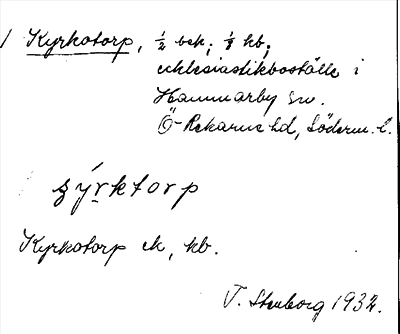 1 Kyrkotorp, ½ bek; ½ kb,
ecklesiastikboställe i
Hammarby sn.
Ö-Rekarne hd, Söderm. l.
şýṛktorp
Kyrkotorp ek, kb.
T. Stenborg 1932.